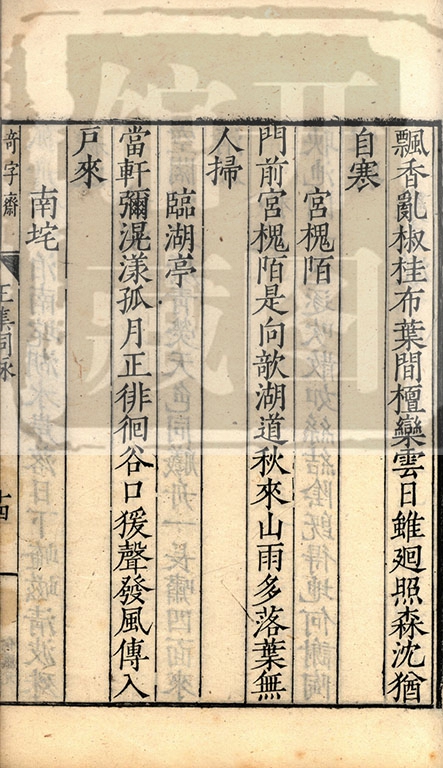 飄香亂椒桂布葉間檀欒雲日雖廻照森沈猶
自寒
宮槐陌
門前宮槐陌是向欹湖道秋來山雨多落葉無
人掃
臨湖亭
當軒彌滉漾孤月正徘徊谷口猨聲發風傳入
戸來
南垞
奇字齋
王集同詠
十四